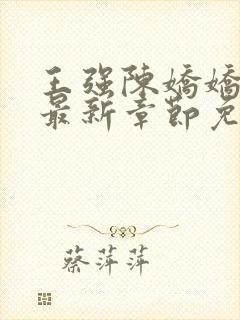 王强陈娇娇
最新章节免
蔡萍萍